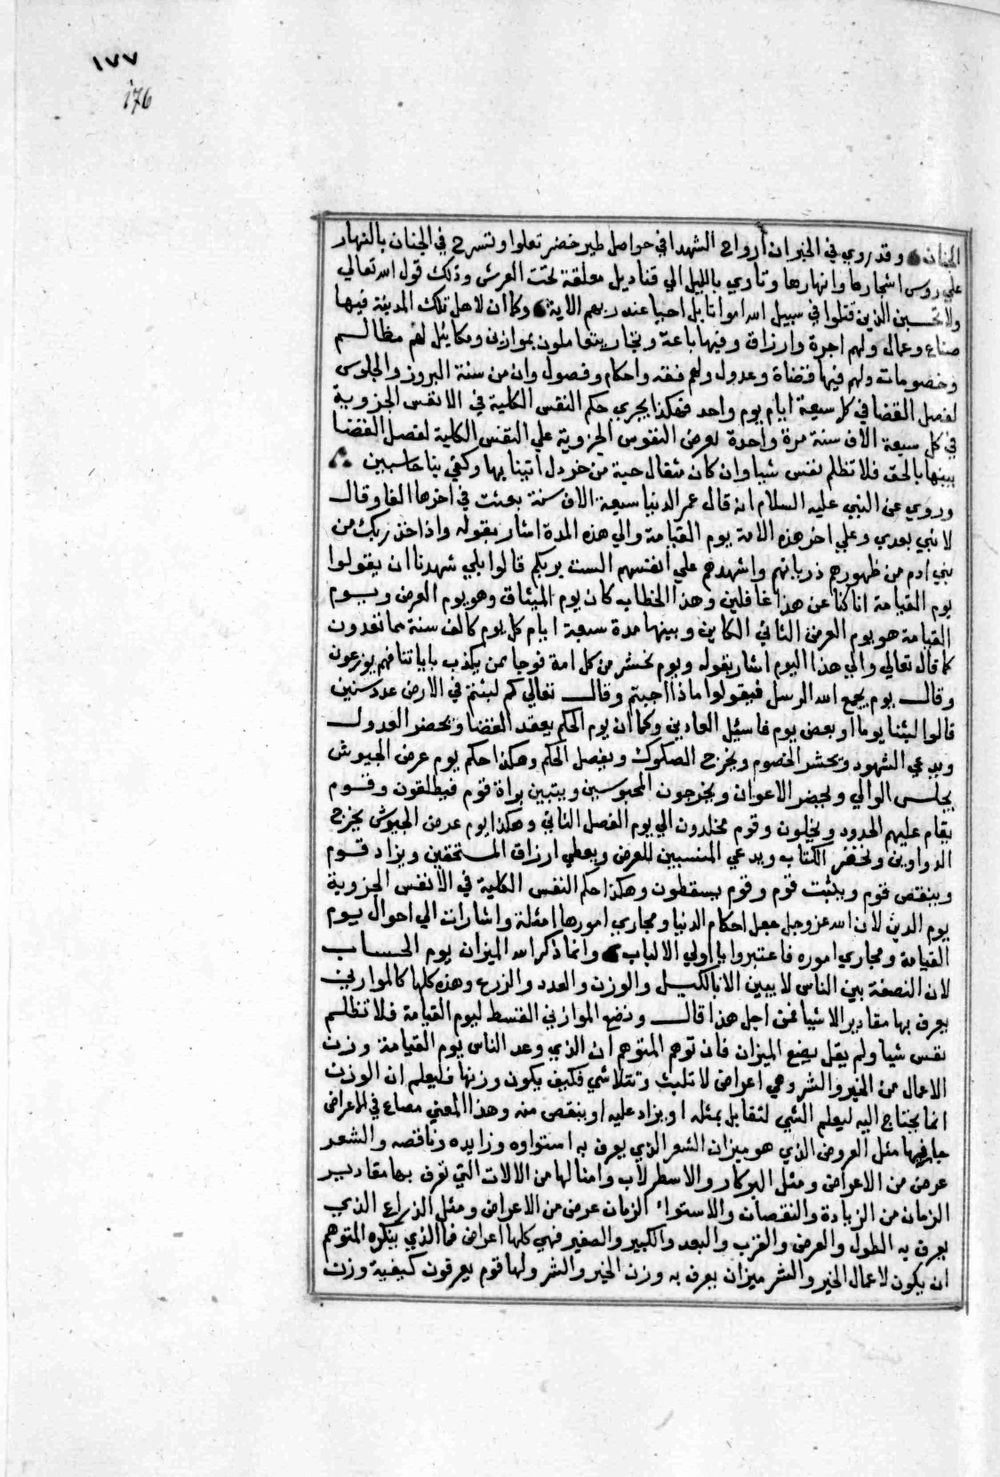 ١٧٧
176
الجنان وقد روي في الخبر ان ارواح الشهدا في حواصل طير خضر تعلوا وتسرح في الجنان بالنهار
علي روس اشجارها وانهارها وتاوي بالليل الي قناديل معلقة تحت العرش وذلك قول الله تعالي
ولا تحسبن الذين قتلوا في سبيل الله امواتا بل احيا عند ربهم الاية وكما ان لاهل تلك المدينة فيها
صناع وعمال ولهم اجرة وارزاق وفيها باعة وتجار يتعاملون بموازين ومكائيل لهم مظالم
وخصومات ولهم فيها قضاة وعدول ولهم فقه واحكام وفصول وان من سنة البروز والجلوس
لفصل القضا في كل سبعة ايام يوم واحد فهكذا يجري حكم النفس الكلية في الانفس الجزوية
في كل سبعة الاف سنة مرة واحدة لعرض النفوس الجزوية علي النفس الكلية لفصل القضا
بينها بالحق فلا تظلم نفس شيا وان كان مثقال حبة من خردل اتينا بها وكفي بنا حاسبين
وروي عن النبي عليه السلام انه قال عمر الدنيا سبعة الاف سنة بعثت في اخرها الفا وقال
لا نبي بعدي وعلي اخر هذه الامة يوم القيامة والي هذه المدة اشار بقوله واذ اخذ ربك من
بني ادم من ظهورهم ذرياتهم واشهدهم علي انفسهم الست بربكم قالوا بلي شهدنا ان يقولوا
يوم القيامة انا كنا عن هذا غافلين وهذا الخطاب كان يوم الميثاق وهو يوم العرض ويوم
القيامة هو يوم العرض الثاني الكاين وبينها مدة سبعة ايام كل يوم كالف سنة مما تعدون
كما قال تعالي والي هذا اليوم اشار بقوله ويوم نحشر من كل امة فوجا ممن يكذب باياتنا فهم يوزعون
وقال يوم يجمع الله الرسل فيقولوا ماذا اجبتم وقال تعالي كم لبثتم في الارض عدد سنين
قالوا لبثنا يوما او بعض يوم فاسيل العادين وكما ان يوم الحكم يعقد القضا ويحضر العدول
ويدعي الشهود ويحشر الخصوم ويخرج الصكوك ويفصل الحكم وهكذا حكم يوم عرض الجيوش
يجلس الوالي ويحضر الاعوان ويخرجون المحبوسين ويتبين براة قوم فيطلقون وقوم
يقام عليهم الحدود ويخلون وقوم مخلدون الي يوم الفصل الثاني وهكذا يوم عرض الجيوش يخرج
الدواوين ويحضر الكتاب ويدعي المنسبين للعرض ويعطي ارزاق المستحقين ويزاد قوم
وينقص قوم ويثبت قوم وقوم يسقطون وهكذا حكم النفس الكلية في الانفس الجزوية
يوم الدين لان الله عز وجل جعل احكام الدنيا ومجاري امورها امثلة واشارات الي احوال يوم
القيامة ومجاري اموره فاعتبروا يا اولي الالباب وانما ذكر الله الميزان يوم الحساب
لان النصفة بين الناس لا يبين الا بالكيل والوزن والعدد والذرع وهذه كلها كالموازين
يعرف بها مقادير الاشيا فمن اجل هذا قال ونضع الموازين القسط ليوم القيامة فلا تظلم
نفس شيا ولم يقل يضع الميزان فان توهم المتوهم ان الذي وعد الناس يوم القيامة وزن
الاعمال من الخير والشر وهي اعراض لا تلبث وتتلاشي فكيف يكون وزنها فليعلم ان الوزن
انما يحتاج اليه ليعلم الشي لتقابل بمثله او يزاد عليه او ينقص منه وهذا المعني مصاع في الاعراض
جار فيها مثل العروض الذي هو ميزان الشعر الذي يعرف به استواوه وزايده وناقصه والشعر
عرض من الاعراض ومثل البركار والاسطرلاب وامثالها من الالات التي تعرف بها مقادير
الزمان من الزيادة والنقصان والاستواء الزمان عرض من الاعراض ومثل الذراع الذي
يعرف به الطول والعرض والقرب والبعد والكبير والصغير فهي كلها اعراض فما الذي ينكره المتوهم
ان يكون لاعمال الخير والشر ميزان يعرف به وزن الخير والشر ولها قوم يعرفون كيفية وزن